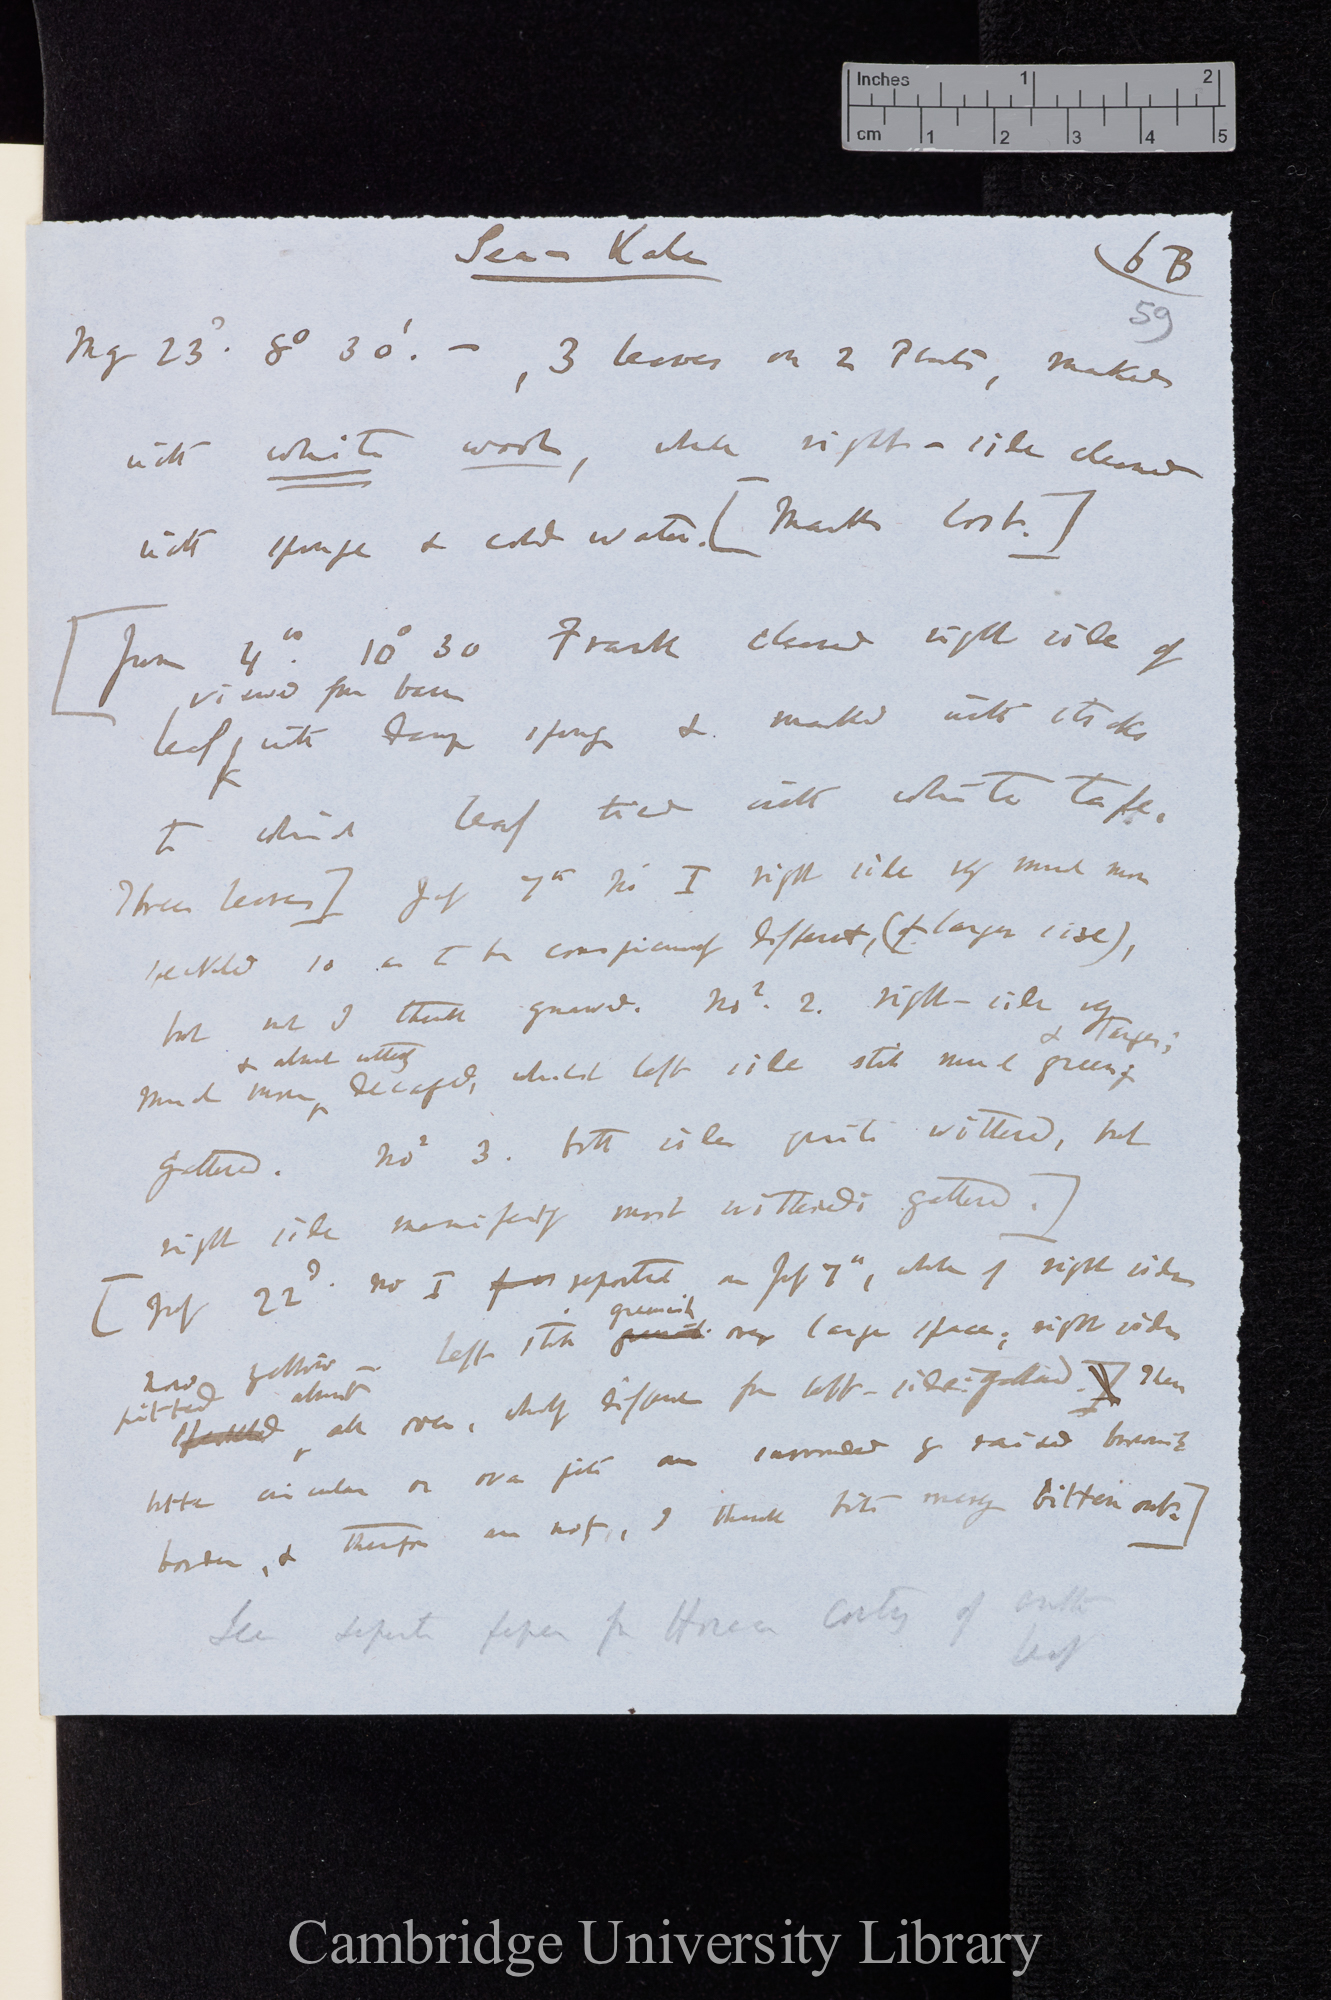 Inches 1 2
cm 1 2 3 4 5
Sea-Kale
6B
59
May 23d. 8° 30'. — , 3 leaves on 2 Plants, marked
with white wool, whole right-side cleaned
with sponge & cold water. [Marks lost.]
[June 4th. 10° 30 Frank cleaned right side of
viewed from base
leaf, with damp sponge & marked with sticks
to which leaf tied with white tape.
Three leaves] July 7th No I right side very much more
so as to be conspicuously different, (& larger size),
but not I think gnawed. No 2. right-side very
& almost withered & larger;
much more decayed, whilst left side still much green;
gathered. No 3. both sides quite withered, but
right side manifestly most withered; gathered.]
[July 22d. No I reported on July 7th, whole of right side
greenish
now yellow — left still over large space; right side
pitted almost
all over, wholly different from left-side: gathered. These
little circular or oval pits are surrounded by raised brownish
border, & therefore are not, I think bits merely bitten out.]
See separate paper for Horace's coating of
leaf
Cambridge University Library